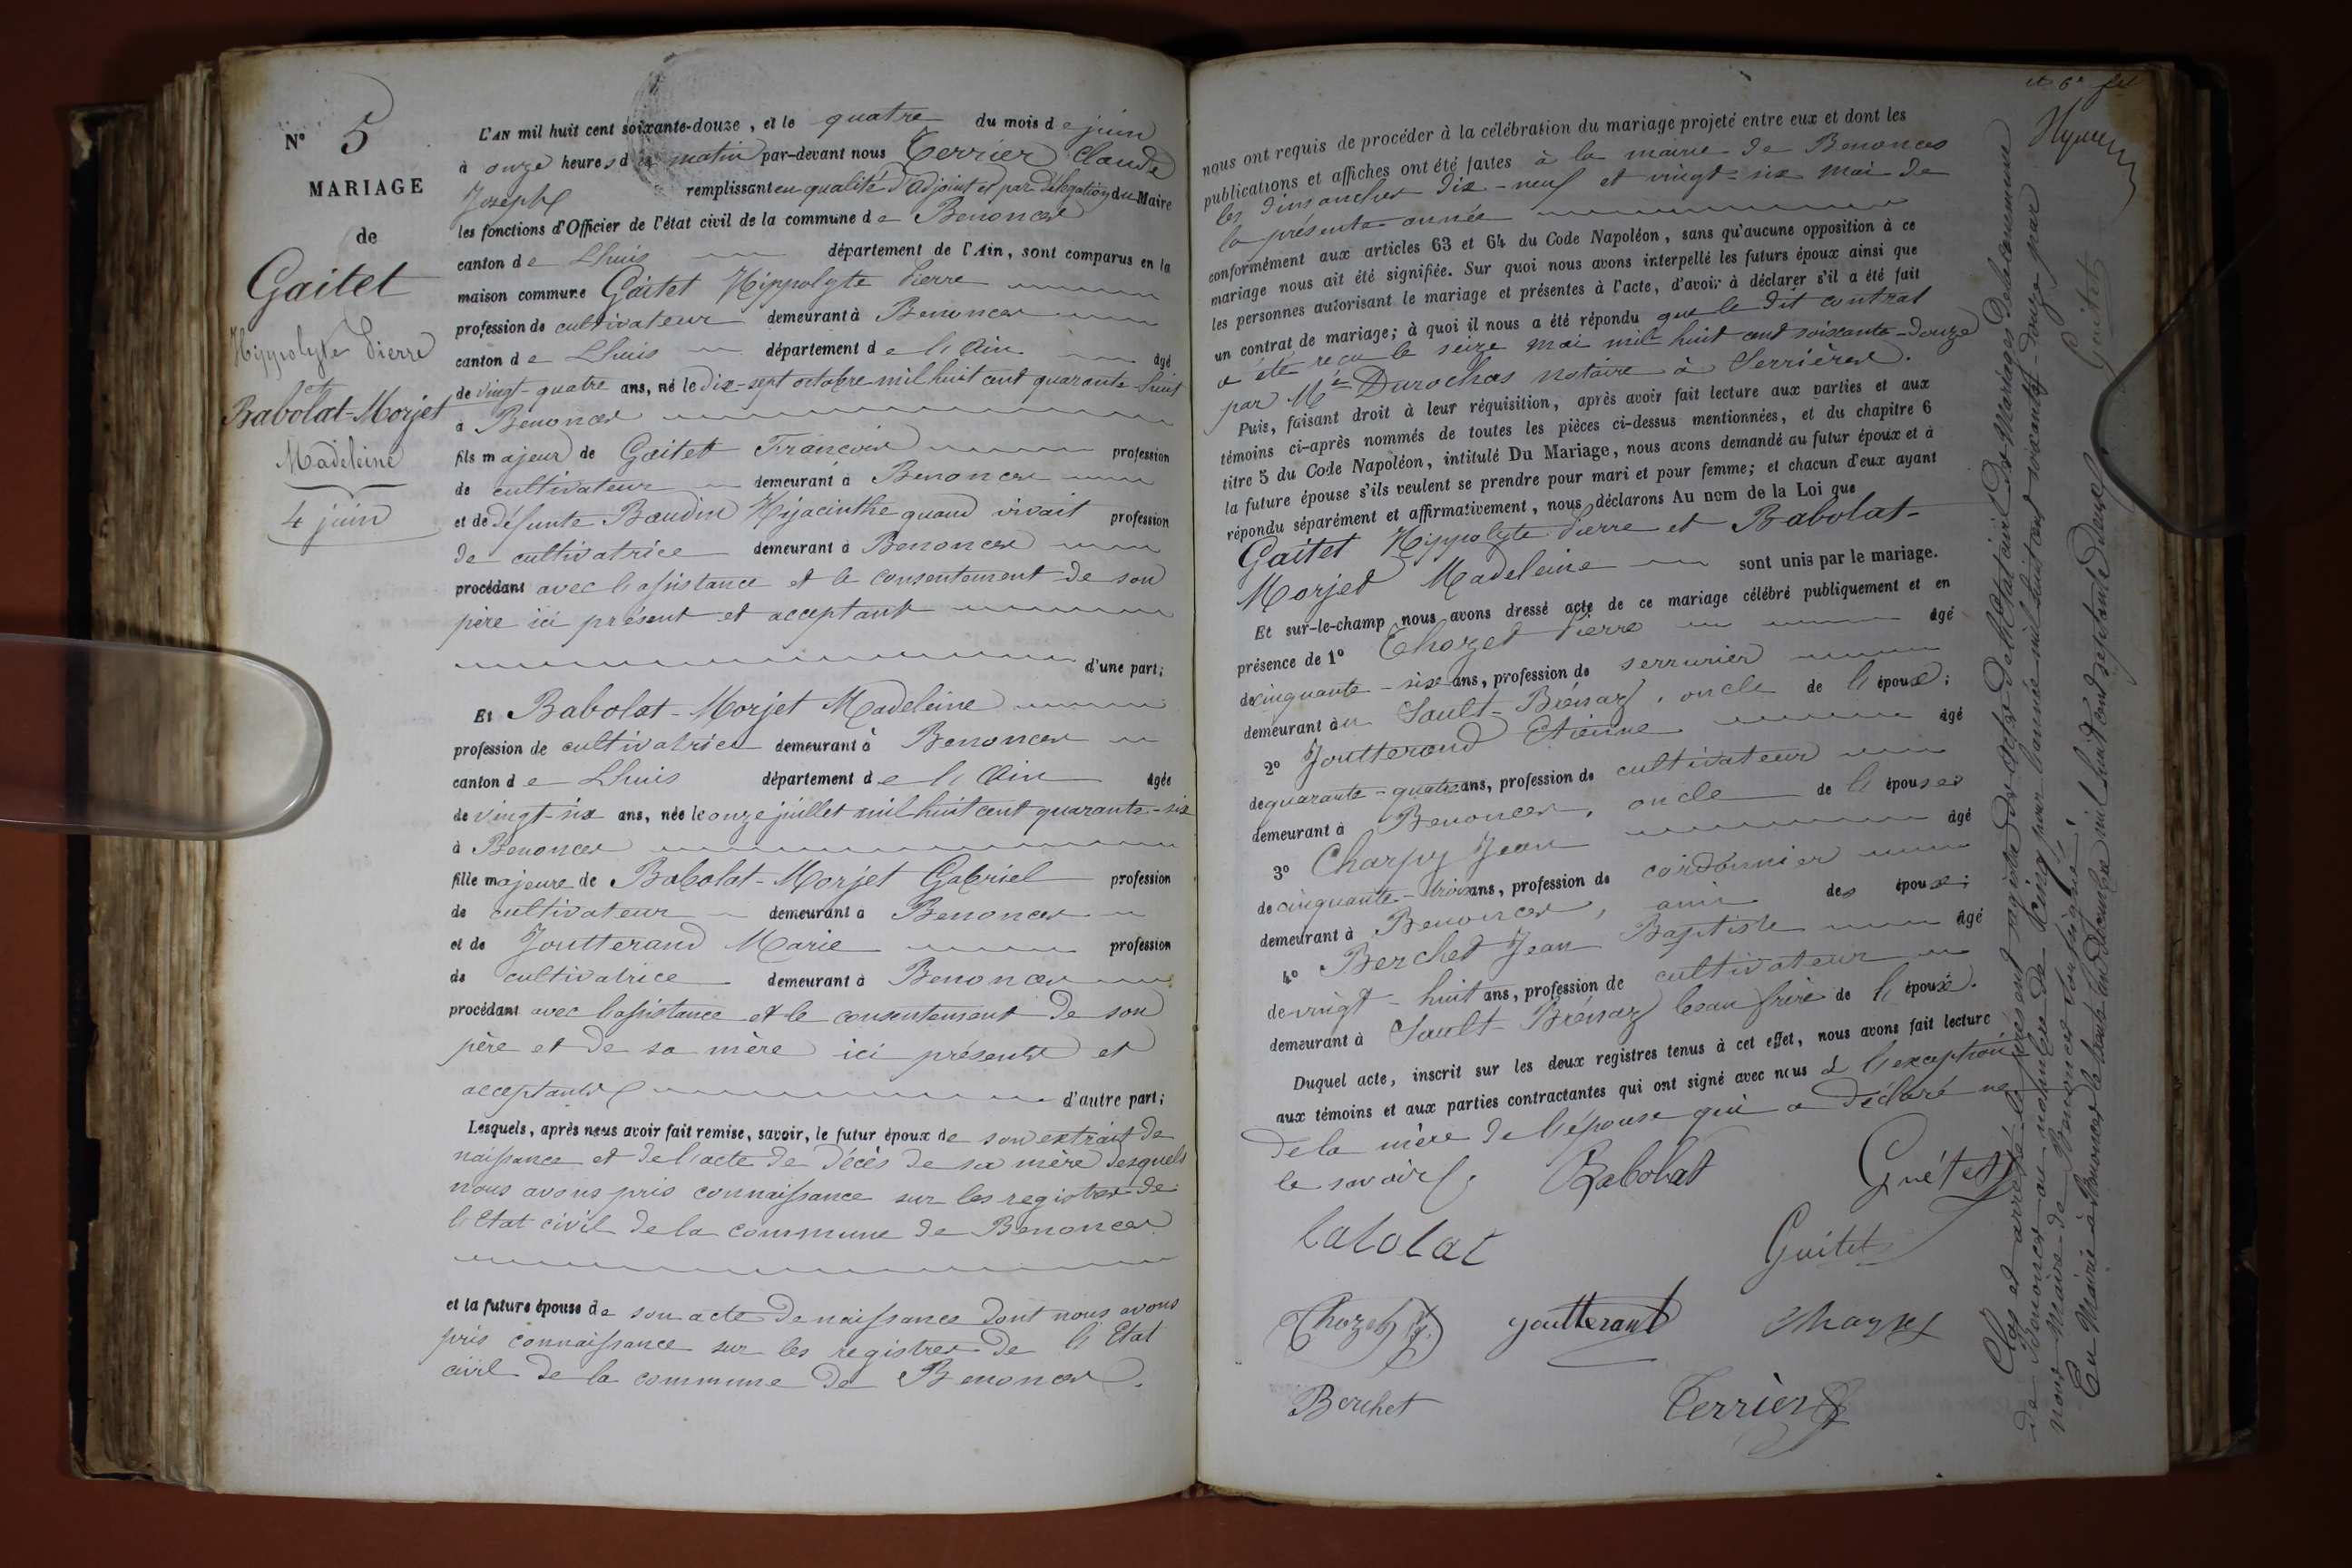 N° 5
MARIAGE
de
Gaitet
Hippolyte Pierre
et
Babolat-Morjet
Madeleine
4 juin
L'AN mil huit cent soixante-douze, et le quatre du mois de juin
à onze heures du matin par-devant nous Terrier Claude
Joseph remplissant en qualité d'adjoint et par délégation du Maire
les fonctions d'Officier de l'état civil de la commune de Benonces
canton de Lhuis département de l'Ain, sont comparus en la
maison commune Gaitet Hippolyte Pierre
profession de cultivateur demeurant à Benonces
canton de Lhuis département de l'Ain âgé
de vingt-quatre ans, né le dix-sept octobre mil huit cent quarante-huit
à Benonces
fils majeur de Gaitet François profession
de cultivateur demeurant à Benonces
et de défunte Baudin Hijacinthe quand vivait profession
de cultivatrice demeurant à Benonces
procédant avec l'assistance et le consentement de son
père ici présent et acceptant
d'une part;
Et Babolat-Morjet Madeleine
profession de cultivatrice demeurant à Benonces
canton de Lhuis département de l'Ain âgée
de vingt-six ans, née le onze juillet mil huit cent quarante-six
à Benonces
fille majeure de Babolat-Morjet Gabriel profession
de cultivateur demeurant à Benonces
et de Joutterand Marie profession
de cultivatrice demeurant à Benonces
procédant avec l'assistance et le consentement de son
père et de sa mère ici présents et
acceptants d'autre part;
Lesquels, après nous avoir fait remise, savoir, le futur époux de son extrait de
naissance et de l'acte de décès de sa mère desquels
nous avons pris connaissance sur les registres de
l'Etat civil de la commune de Benonces
et la future épouse de son acte de naissance dont nous avons
pris connaissance sur les registres de l'Etat
civil de la commune de Benonces.
nous ont requis de procéder à la célébration du mariage projeté entre eux et dont les
publications et affiches ont été faites à la mairie de Benonces
les dimanches dix-neuf et vingt-six mai de
la présente année
conformément aux articles 63 et 64 du Code Napoléon, sans qu'aucune opposition à ce
mariage nous ait été signifiée. Sur quoi nous avons interpellé les futurs époux ainsi que
les personnes autorisant le mariage et présentes à l'acte, d'avoir à déclarer s'il a été fait
un contrat de mariage; à quoi il nous a été répondu que le dit contrat
a été reçu le seize mai mil huit cent soixante-douze
par Me Durochas notaire à Serrières.
Puis, faisant droit à leur réquisition, après avoir fait lecture aux parties et aux
témoins ci-après nommés de toutes les pièces ci-dessus mentionnées, et du chapitre 6
titre 5 du Code Napoléon, intitulé Du Mariage, nous avons demandé au futur époux et à
la future épouse s'ils veulent se prendre pour mari et pour femme; et chacun d'eux ayant
répondu séparément et affirmativement, nous déclarons Au nom de la Loi que
Gaitet Hippolyte Pierre et Babolat-
Morjet Madeleine sont unis par le mariage.
Et sur-le-champ nous avons dressé acte de ce mariage célébré publiquement et en
présence de 1° Thozet Pierre âgé
de cinquante-six ans, profession de serrurier
demeurant à Sault-Brénaz, oncle de l'époux;
2° Joutterand Etienne âgé
de quarante-quatre ans, profession de cultivateur
demeurant à Benonces, oncle de l'épouse
3° Charpy Jean âgé
de cinquante-trois ans, profession de cordonnier
demeurant à Benonces, ami des époux;
4° Berchet Jean Baptiste âgé
de vingt-huit ans, profession de cultivateur
demeurant à Sault-Brénaz beau frère de l'époux.
Duquel acte, inscrit sur les deux registres tenus à cet effet, nous avons fait lecture
aux témoins et aux parties contractantes qui ont signé avec nous à l'exception
de la mère de l'épouse qui a déclaré ne
le savoir.
Babolat Guétet
babolat Guitet
Thozet Joutterand
Berchet Terrier
Clos et arrêté le présent registre des actes de l'Etat civil des Mariages de la commune
de Benonces au nombre de Cinq pour l'année mil huit cent soixante-douze par
nous Maire de Benonces soussigné.
En Mairie à Benonces le trente un décembre mil huit cent septante deux
Guitet
et 6e fet